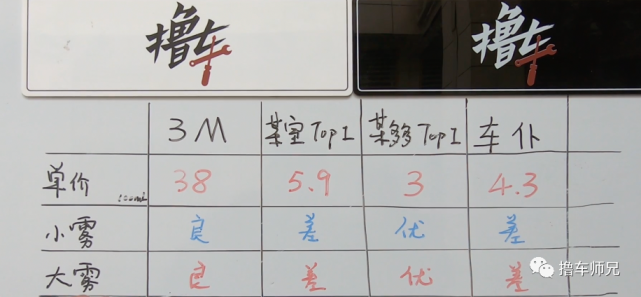 撸车
撸车
3M 某宝Top1 某多多Top1 车仆
单价 100ml 38 5.9 3 4.3
小雾 良 差 优 差
大雾 良 差 优 差
撸车师兄